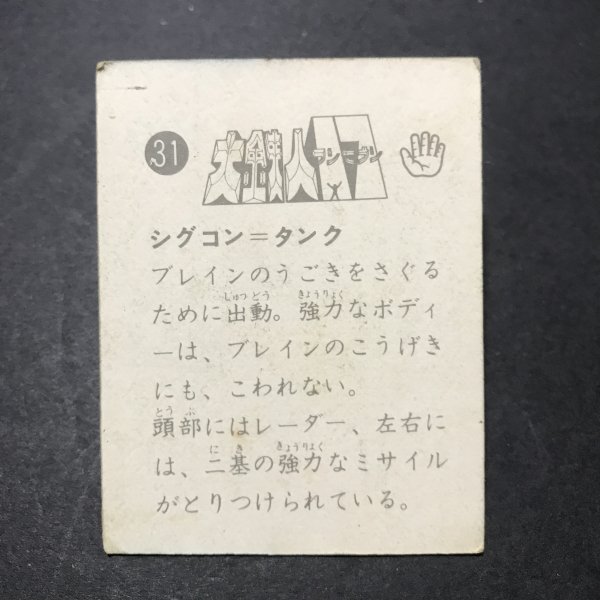 31
大鉄人17
ワンセブン
シグコン=タンク
ブレインのうごきをさぐる
ために出動。強力なボディ
ーは、ブレインのこうげき
にも、こわれない。
頭部にはレーダー、左右に
は、二基の強力なミサイル
がとりつけられている。